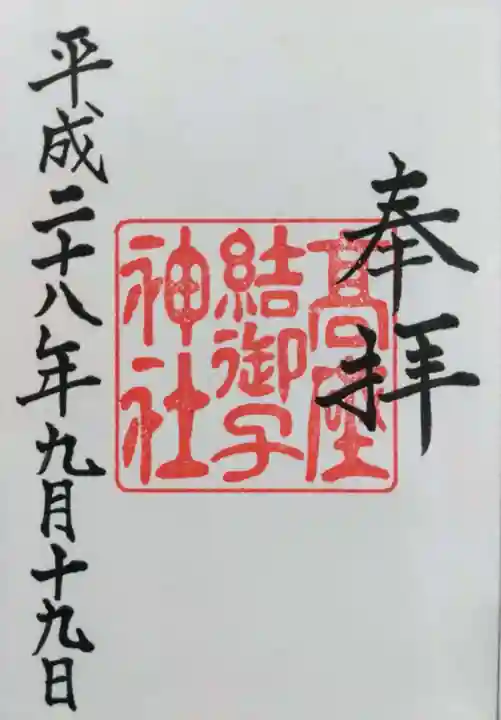 奉拝
高座
結御子
神社
平成二十八年九月十九日